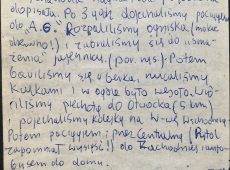 dopisała. Po 3 godz. dojechaliśmy pociągiem
do A.G. Rozpaliliśmy ognisko (mokre
drewno!) i zabraliśmy się do
jajecznicy (por. rys.) Potem
bawiliśmy się w berka, rzucaliśmy
kulkami i w ogóle było wesoło.
piechotą do Otwocka (5 km)
i pojechaliśmy kolejką na W-wę Wschodnią
Potem pociągiem przez Centralny (Pytol
zapomniał wysiąść!) do Zachodniej i auto-
busem do domu.